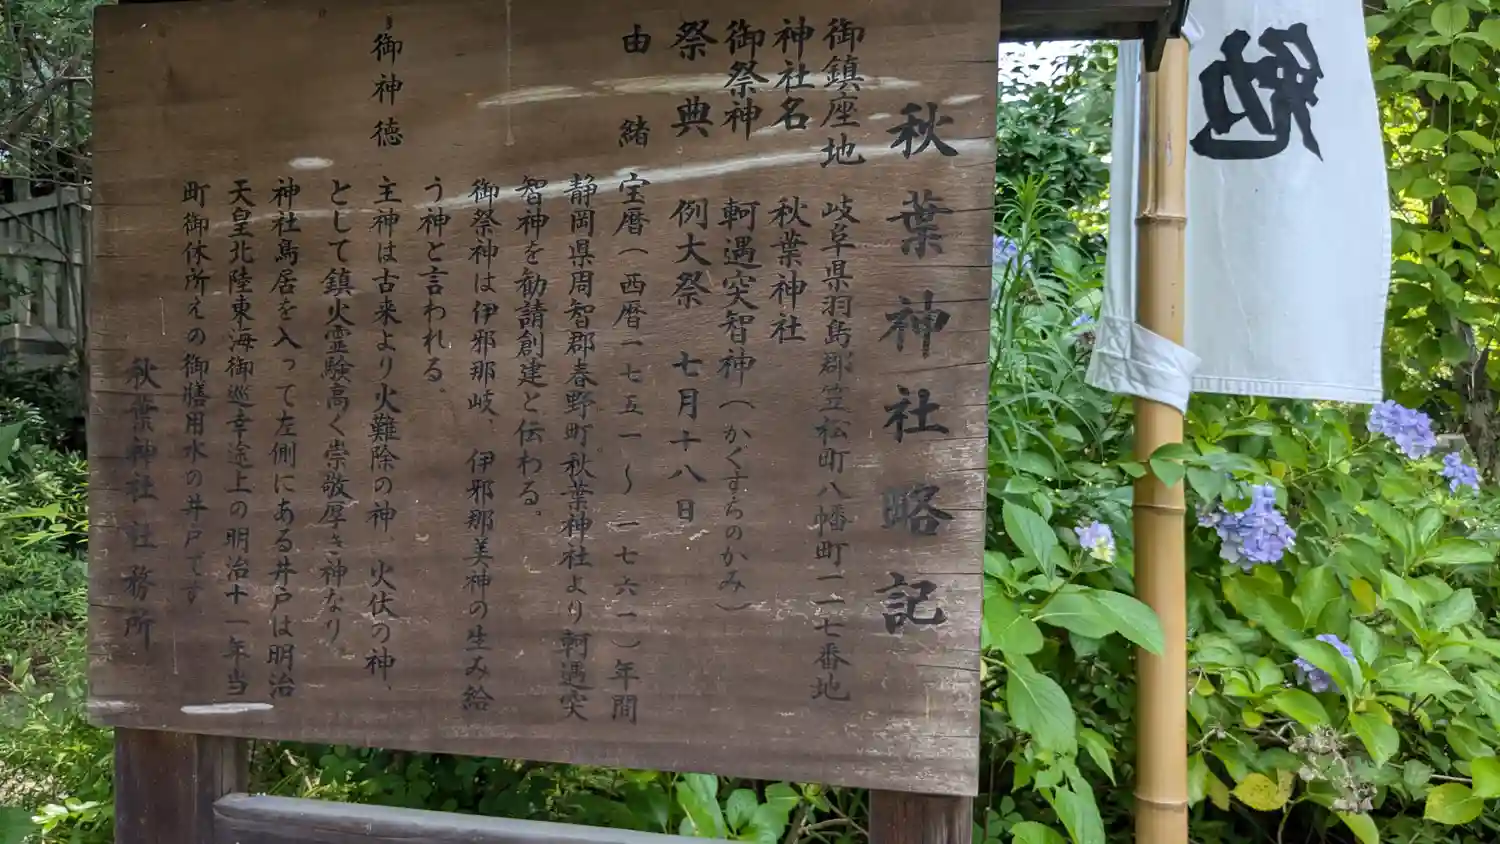 勉
秋葉神社略記
御鎮座地 岐阜県羽島郡笠松町八幡町一一七番地
神社名 秋葉神社
御祭神 軻遇突智神（かぐすちのかみ）
祭典 例大祭 七月十八日
由緒 宝暦（西暦一七五一～一七六一）年間
静岡県周智郡春野町秋葉神社より軻遇突
智神を勧請創建と伝わる。
御祭神は伊邪那岐、伊邪那美神の生み給
う神と言われる。
御神徳 主神は古来より火難除の神、火伏の神、
として鎮火霊験高く崇敬厚き神なり。
神社鳥居を入って左側にある井戸は明治
天皇北陸東海御巡幸途上の明治十一年当
町御休所えの御膳用水の井戸です
秋葉神社社務所